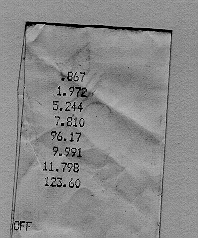 .867
1.972
5.244
7.810
96.17
9.991
11.798
123.60
OFF